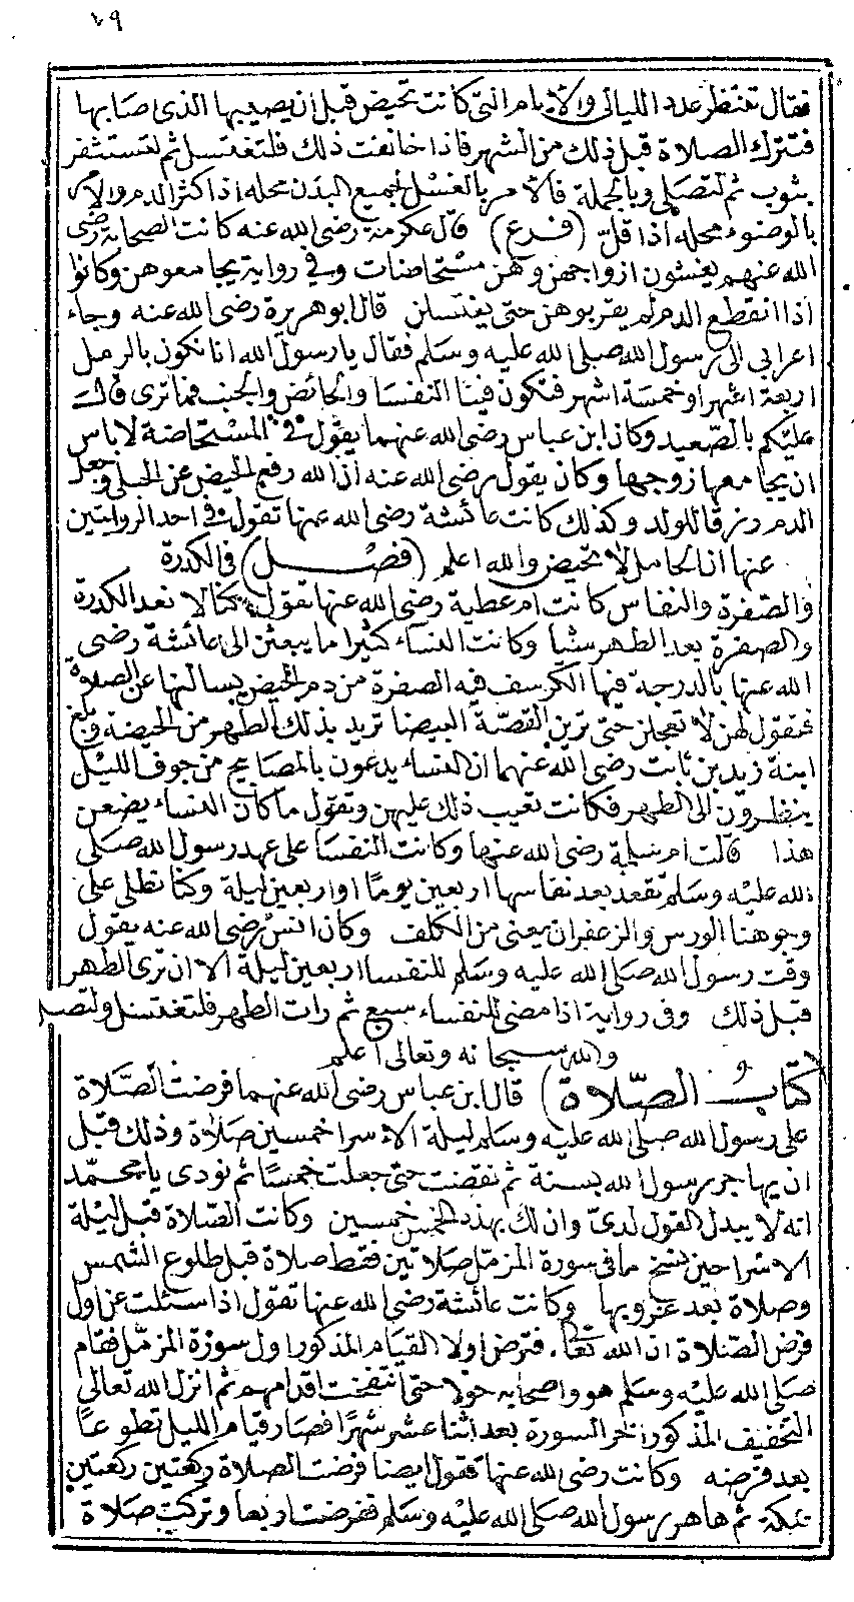 ٧٩
فقال تنتظر عدد الليالى والأيام التى كانت تحيض قبل ان يصيبها الذى اصابها
فتترك الصلاة قبل ذلك من الشهر فاذا خلفت ذلك فلتغتسل ثم لتستثفر
بثوب ثم لتصلى وبالجملة فالامر بالغسل لجميع البدن محله اذا كثر الدم والامر
بالوضوء محله اذا قل (فرع) قال عكرمة رضى الله عنه كانت الصحابة رضى
الله عنهم يغشون ازواجهن وهن مستحاضات وفي رواية يجامعوهن وكانوا
اذا انقطع الدم لم يقربوهن حتى يغتسلن قال ابو هريرة رضى الله عنه وجاء
اعرابي الى رسول الله صلى الله عليه وسلم فقال يا رسول الله انا نكون بالرمل
اربعة اشهر او خمسة اشهر فتكون فينا النفسا والحائض والجنب فما ترى قال
عليكم بالصعيد وكان ابن عباس رضى الله عنهما يقول في المستحاضة لا باس
ان يجامعها زوجها وكان يقول رضى الله عنه ان الله رفع الحيض عن الحبلى وجعل
الدم رزقا للولد وكذلك كانت عائشة رضى الله عنها تقول فى احد الروايتين
عنها ان الحامل لا تحيض والله اعلم (فصل) فى الكدرة
والصفرة والنفاس كانت ام عطية رضى الله عنها تقول كنا لا نعد الكدرة
والصفرة بعد الطهر شيا وكانت النساء كثيرا ما يبعثن الى عائشة رضى
الله عنها بالدرجة فيها الكرسف فيه الصفرة من دم الحيض يسالنها عن الصلاة
فتقول لهن لا تعجلن حتى ترين القصة البيضا تريد بذلك الطهر من الحيضة وبلغ
ابنة زيد بن ثابت رضى الله عنهما ان النساء يدعون بالمصابيح من جوف الليل
ينظرون الى الطهر فكانت تعيب ذلك عليهن وتقول ما كان النساء يصنعن
هذا قالت ام سلمة رضى الله عنها وكانت النفسا على عهد رسول الله صلى
الله عليه وسلم تقعد بعد نفاسها اربعين يوما او اربعين ليلة وكنا نطلى على
وجوهنا الورس والزعفران يعنى من الكلف وكان انس رضى الله عنه يقول
وقت رسول الله صلى الله عليه وسلم للنفسا اربعين ليلة الا ان ترى الطهر
قبل ذلك وفى رواية اذا مضى للنفساء سبع ثم رات الطهر فلتغتسل ولتصل
والله سبحانه وتعالى اعلم
كتاب الصلاة) قال ابن عباس رضى الله عنهما فرضت الصلاة
على رسول الله صلى الله عليه وسلم ليلة الاسرا خمسين صلاة وذلك قبل
ان يهاجر رسول الله بسنة ثم نقضت حتى جعلت خمسا ثم نودى يا محمد
انه لا يبدل القول لدى وان لك بهذه الخمس خمسين وكانت الصلاة قبل ليلة
الاسرا حين نسخ ما فى سورة المزمل صلاتين فقط صلاة قبل طلوع الشمس
وصلاة بعد غروبها وكانت عائشة رضى الله عنها تقول اذا سئلت عن اول
فرض الصلاة ان الله تعا، فترض اولا القيام المذكور اول سورة المزمل فقام
صلى الله عليه وسلم هو واصحابه حولا حتى انتفخت اقدامهم ثم انزل الله تعالى
التخفيف المذكور اخر السورة بعد اثنا عشر شهرا فصار قيام الليل تطوعا
بعد فرضه وكانت رضى الله عنها تقول ايضا فرضت الصلاة ركعتين ركعتين
بمكة ثم هاجر رسول الله صلى الله عليه وسلم ففرضت اربعا وتركت صلاة